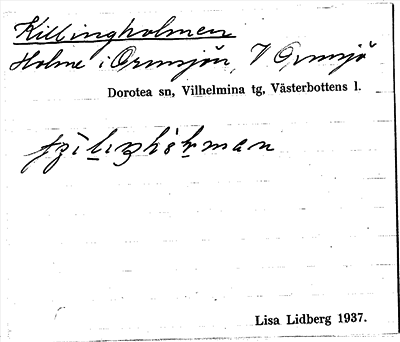 Killingholmen
Holme i Ormsjön, V Ormsjö
Dorotea sn, Vilhelmina tg, Västerbottens l.
Lisa Lidberg 1937.